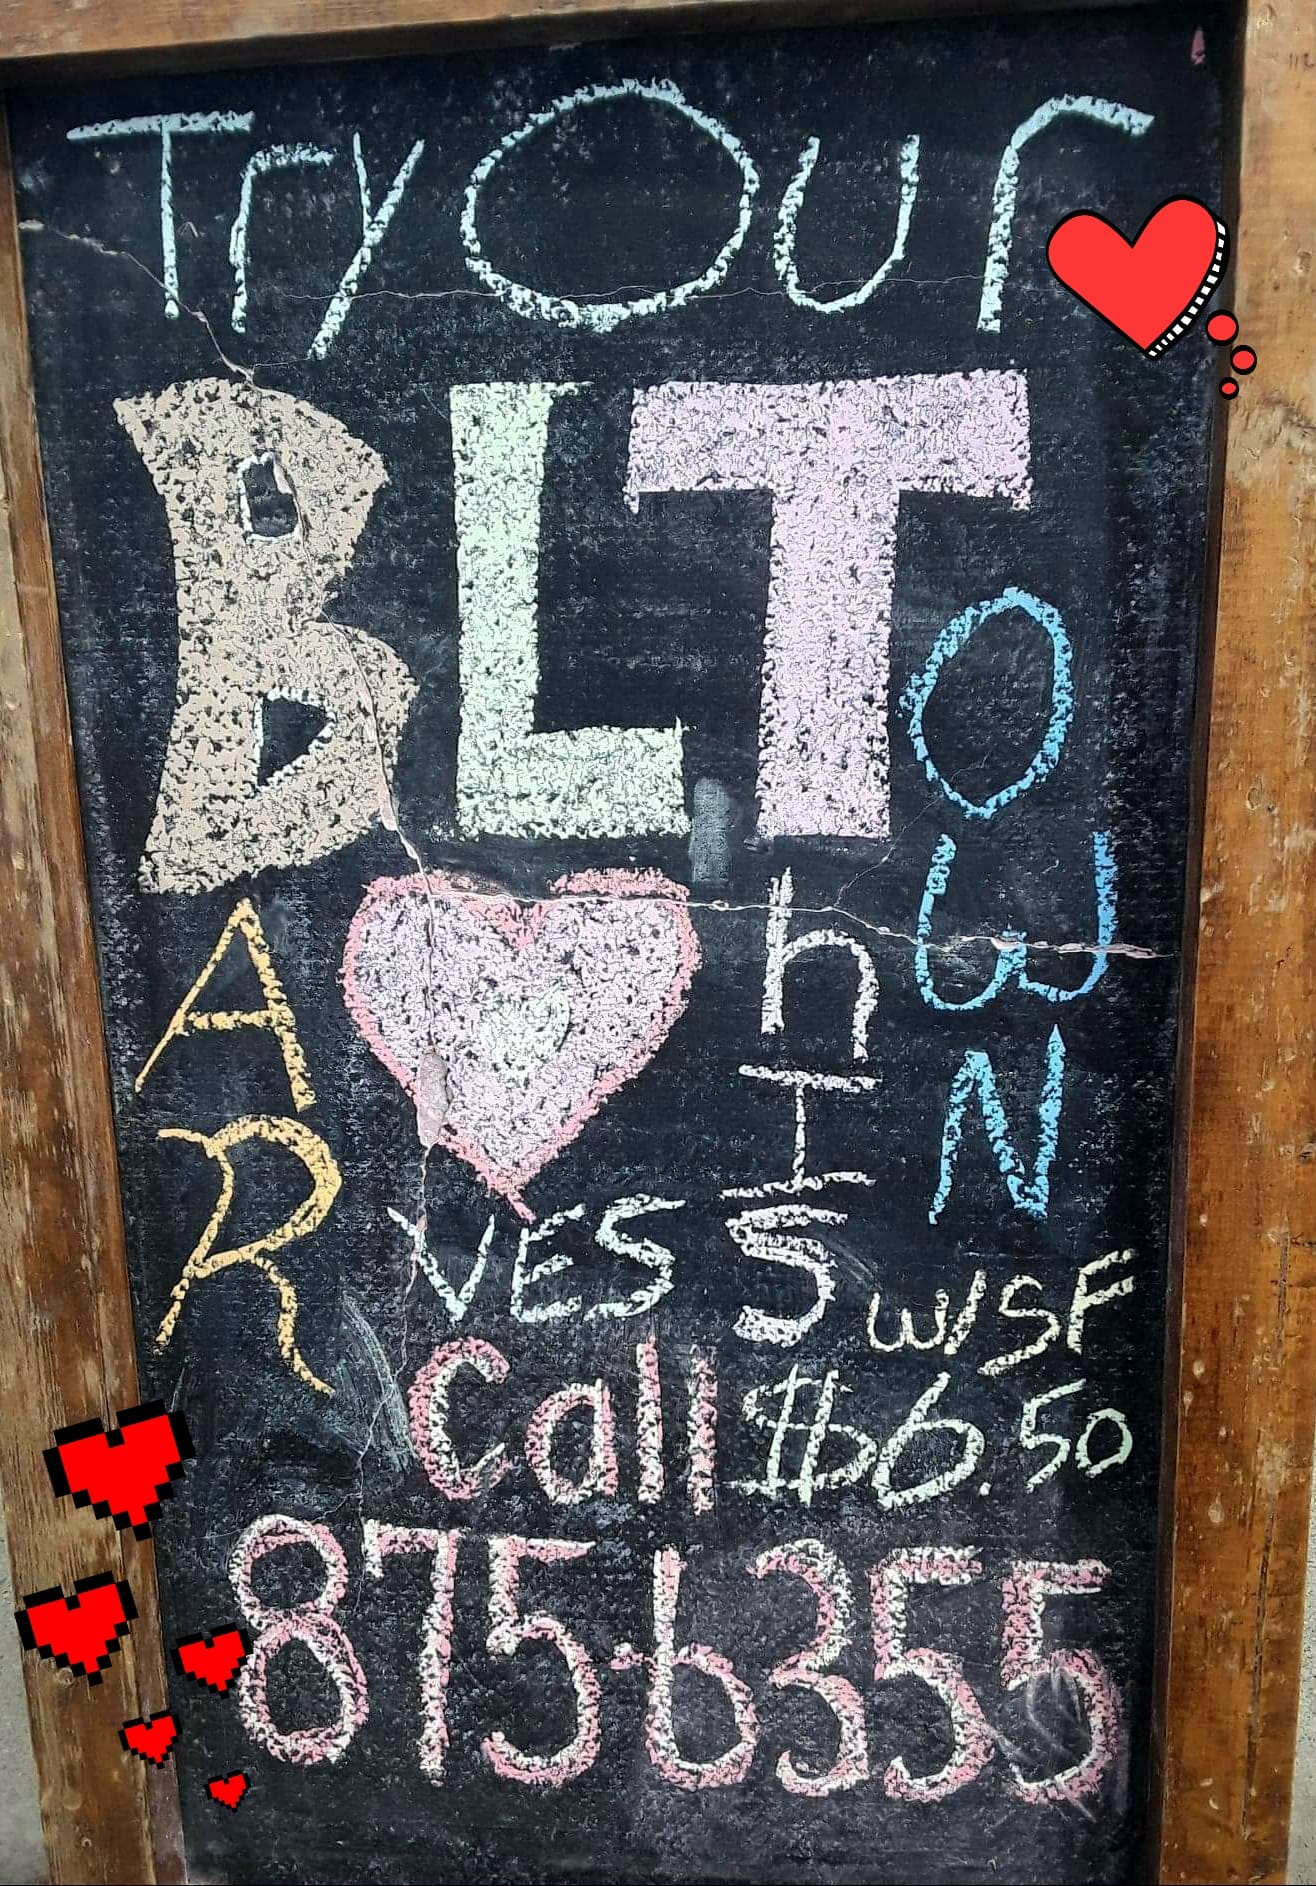 Try Our
BLT
AR
VES
hIS
OWN
w/SF
$6.50
Call
875-6355